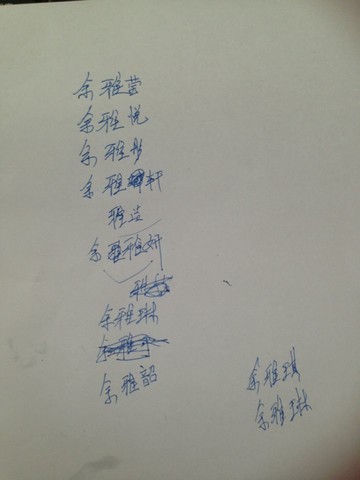 余雅萱
余雅悦
余雅彤
余雅轩
雅
余雅妍
余雅琳
余雅韶
余雅琪
余雅琳